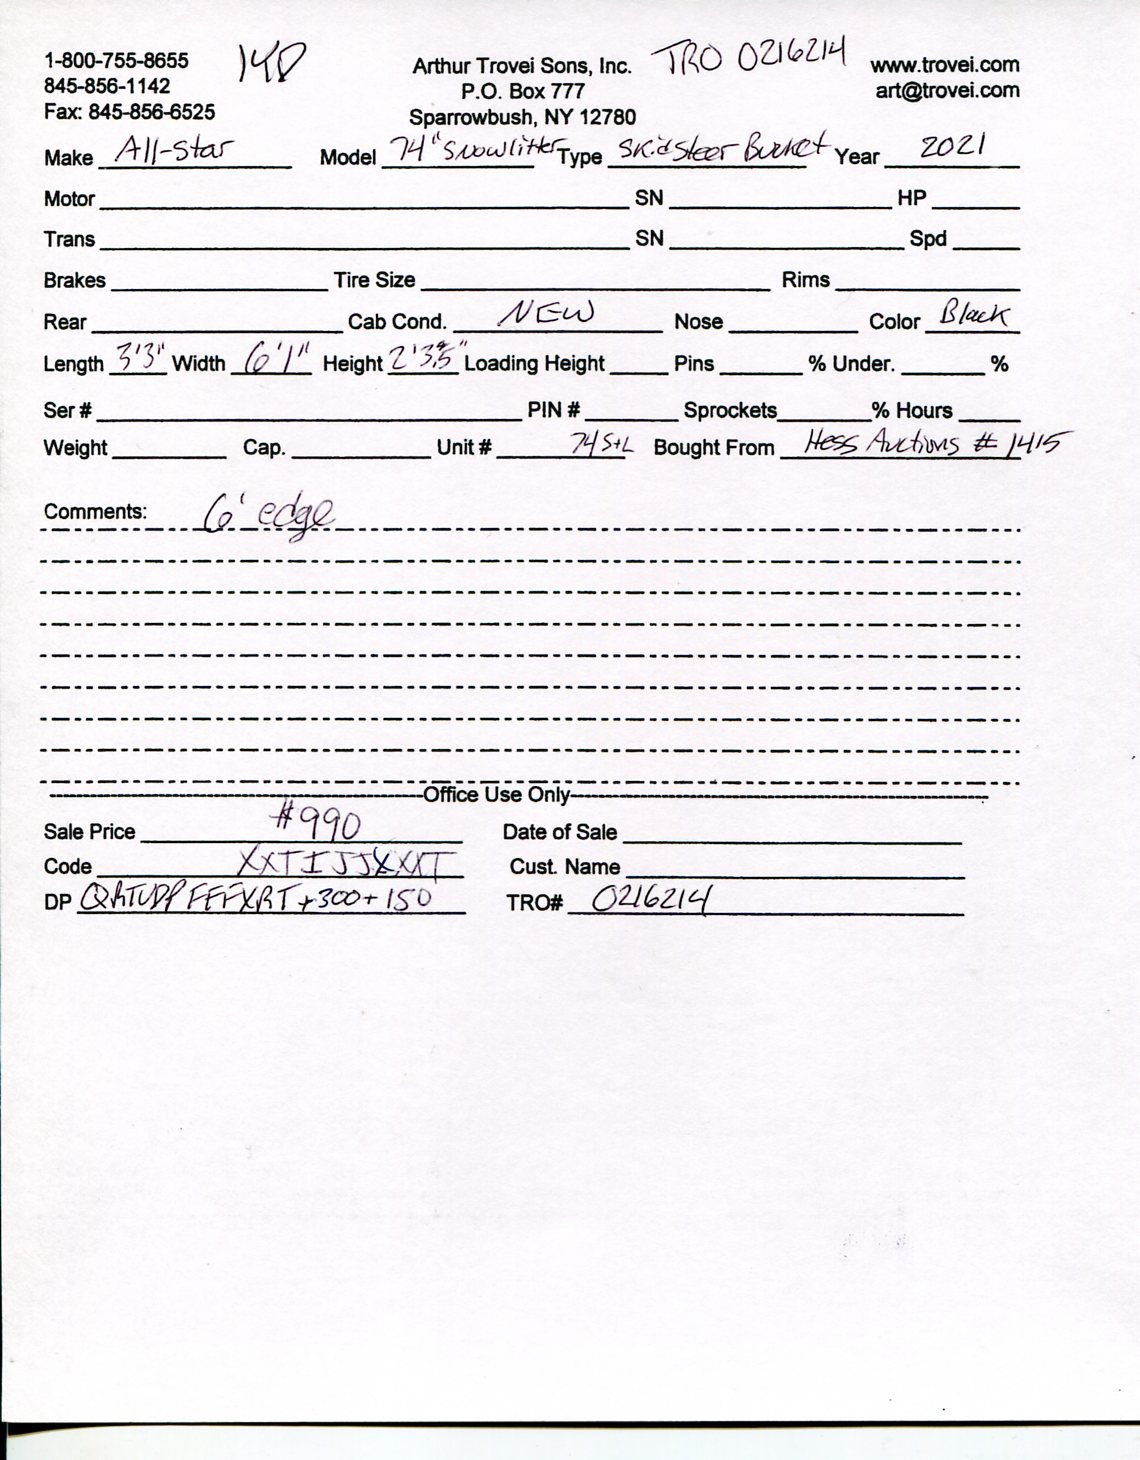 1-800-755-8655
845-856-1142
Fax: 845-856-6525
Arthur Trovei Sons, Inc.
P.O. Box 777
Sparrowbush, NY 12780
TRO 0216214
www.trovei.com
art@trovei.com
Make All-Star Model 74" Snowlitter Type Skidsteer Bucket Year 2021
Motor SN HP
Trans SN Spd
Brakes Tire Size Rims
Rear Cab Cond. NEW Nose Color Black
Length 3'3" Width 6'1" Height 2'3.5" Loading Height Pins % Under. %
Ser # PIN # Sprockets % Hours
Weight Cap. Unit # 74S+L Bought From Hess Auctions # 1415
Comments: 6' edge
Office Use Only
Sale Price #990 Date of Sale
Code XXTIJJXXXT Cust. Name
DP +300+150 TRO# 0216214